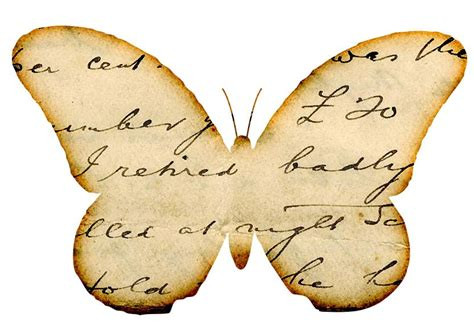 per cent was the
umber y £ 70
I retired badly
lled at night So
told he h